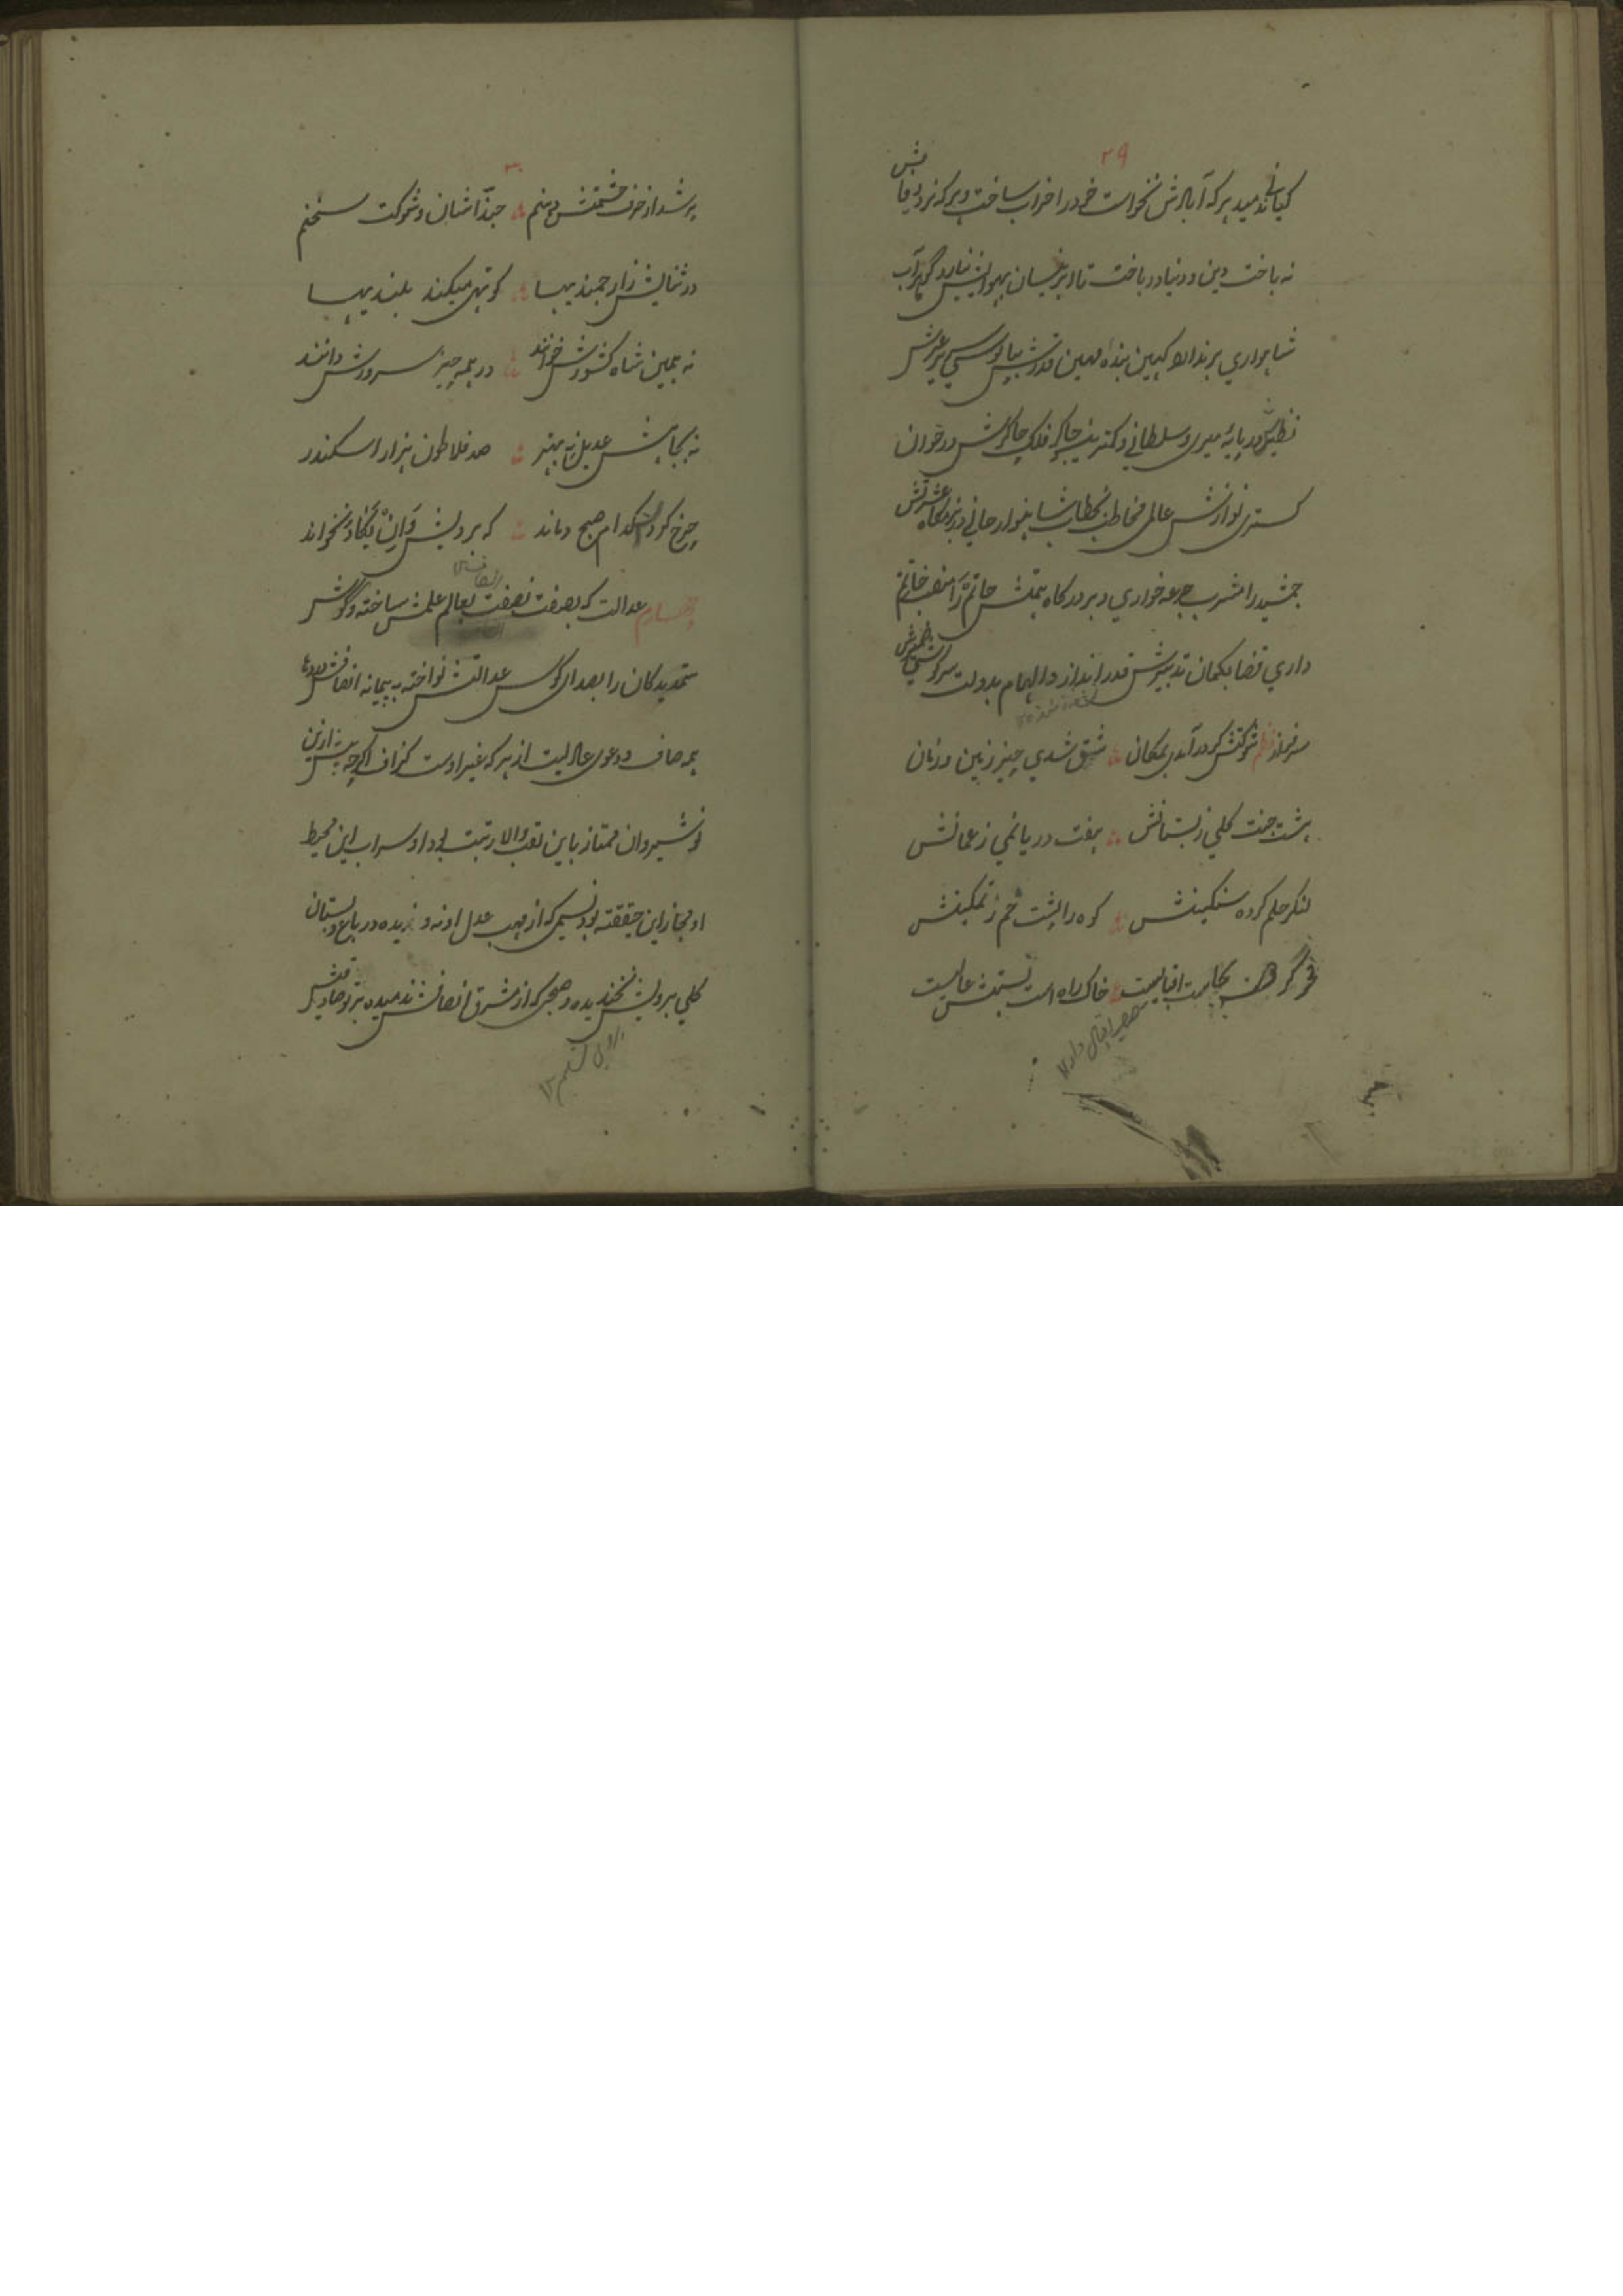 ۲۹
کیانی ندمید هر که آبادش نخواست خود را خراب ساخت و هر که نرد وفایش
نه باخت دین و دنیا در باخت تا ابر نیسان بهوایش نبارد گوهر آب
شاهواری بر ندارد کهین بنده مهین قدرش بپابوسی سریر عرش
نظیرش در پایهٔ میری و سلطانی و کمترینه چاکر فلک چاکرش در خوان
گستری نوازش عالمی مخاطب بخطاب شاهنواز خانی در بزمگاه عشرتش
جمشید را مشرب جرعه خواری و بر درگاه همتش حاتم را منصب خاتم
داری قضا بکمان تدبیرش قدر انداز و الهام بدولت سرگوشی ضمیرش
سرفراز نظم شوکتش گر در آمدی بمکان شق شدی چیز زمین و زمان
هشت جنت گلی ز بستانش هفت دریا نمی ز عمانش
لنگر حلم کرده سنگینش کوه را پشت خم ز تمکینش
خاک راه است
۳۰
پر شد از حرف حشمتش دهنم حبذا شان و شوکت سخنم
در ثنایش ز ارجمندیها کوتهی میکند بلندیها
نه همین شاه کشورش خوانند در همه چیز سرورش دانند
نه بجاهش عدیل نه بهنر صد فلاطون هزار اسکندر
چرخ گردان کدام صبح دماند که برویش و ان یکاد نخواند
چهارم عدالت که بصفت نصفت بعالم علمش ساخته و گوش
ستمدیدگان را بصدای کوس عدالتش نواخته به پیمانه انصافش
همه صاف و دعوی عدالت از هر که غیر اوست گزاف اگرچه پیش ازین
نوشیروان ممتاز باین لقب والا رتبت بود او سراب این محیط
او مجاز این حقیقت بود نسیمی که از مهب عدل او نه وزیده در باغ و بستان
گلی برویش نخندیده و صبحی که از مشرق انصافش ندمیده